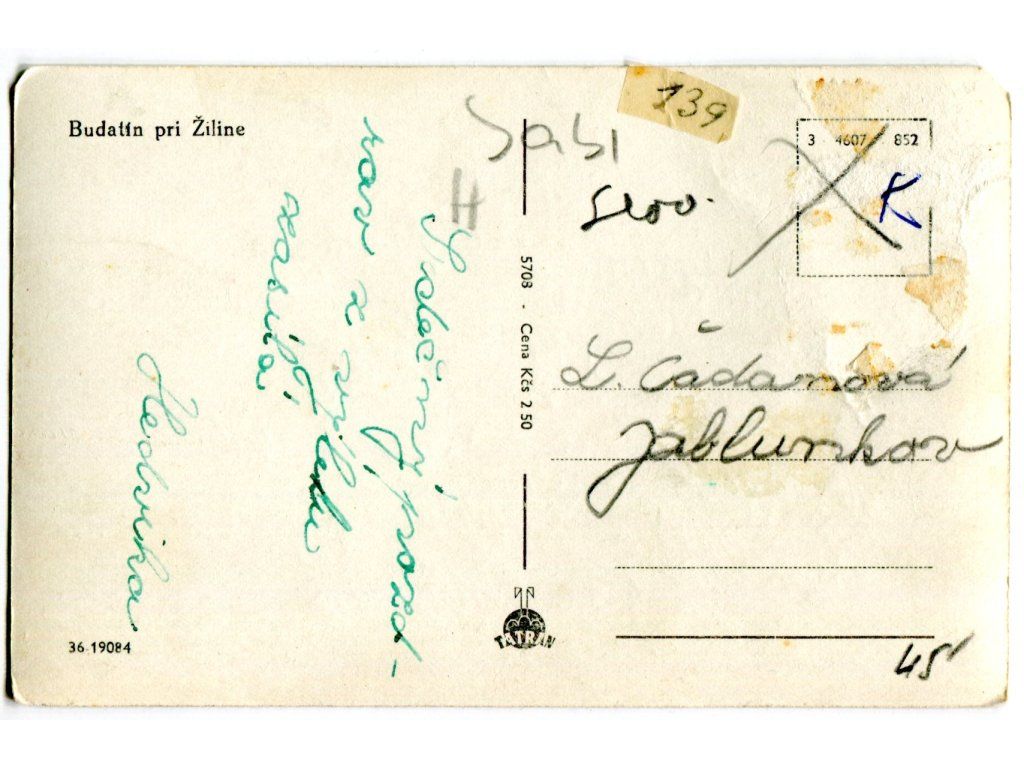 Budatín pri Žiline
139
3 4607 852
K
Slov.
H
Srdečný pozd-
rav z výletu
zasílá
Hedvika
5708 - Cena Kčs 2.50
L. Čadanová
Jablunkov
TATRAN
36 19084
45